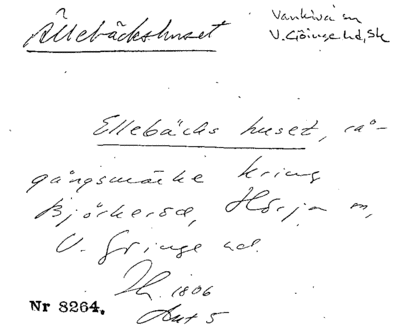 Ällebäckshuset
Vankiva sn
V. Göinge hd, Sk
Ellebäcks huset, rå-
gångsmärke kring
Björkeröd, Hörja sn,
V. Göinge hd.
1806
Akt 5
Nr 8264.